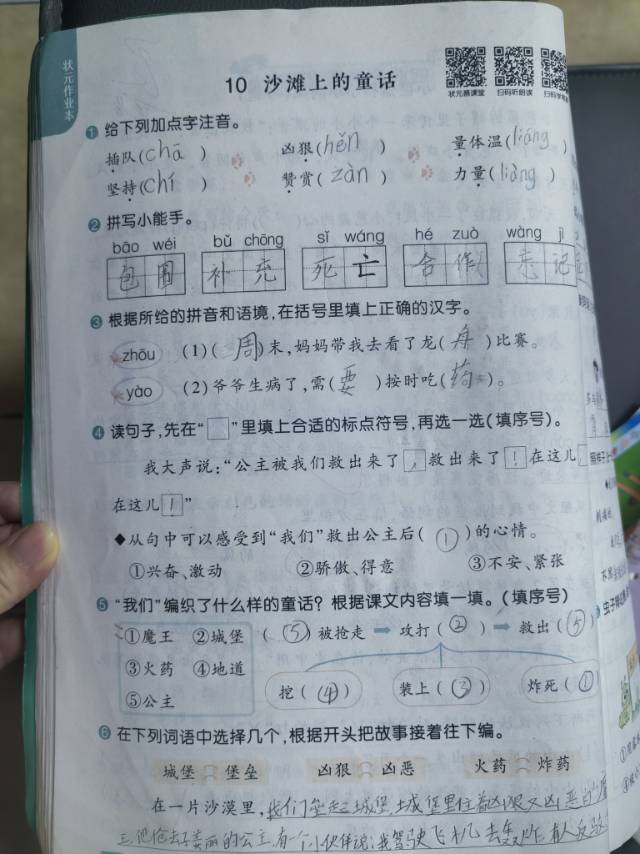 状元作业本
10 沙滩上的童话
状元易课堂 扫码听朗读
1 给下列加点字注音。
插队(chā) 凶狠(hěn) 量体温(liáng)
坚持(chí) 赞赏(zàn) 力量(liàng)
2 拼写小能手。
bāo wéi bǔ chōng sǐ wáng hé zuò wàng jì
包围 补充 死亡 合作 忘记
3 根据所给的拼音和语境,在括号里填上正确的汉字。
zhōu (1)(周)末,妈妈带我去看了龙(舟)比赛。
yào (2)爷爷生病了,需(要)按时吃(药)。
4 读句子,先在“□”里填上合适的标点符号,再选一选(填序号)。
我大声说:“公主被我们救出来了,救出来了!在这儿
在这儿!”
◆从句中可以感受到“我们”救出公主后(①)的心情。
①兴奋、激动 ②骄傲、得意 ③不安、紧张
5 “我们”编织了什么样的童话?根据课文内容填一填。(填序号)
①魔王 ②城堡 (⑤)被抢走 → 攻打(②) → 救出(⑤)
③火药 ④地道
⑤公主 挖(④) 装上(③) 炸死(①)
6 在下列词语中选择几个,根据开头把故事接着往下编。
城堡 堡垒 凶狠 凶恶 火药 炸药
在一片沙漠里,我们垒起城堡,城堡里住着凶狠又凶恶的魔
王,他抢去了美丽的公主,有一个小伙伴说:我驾驶飞机去轰炸,有人反驳